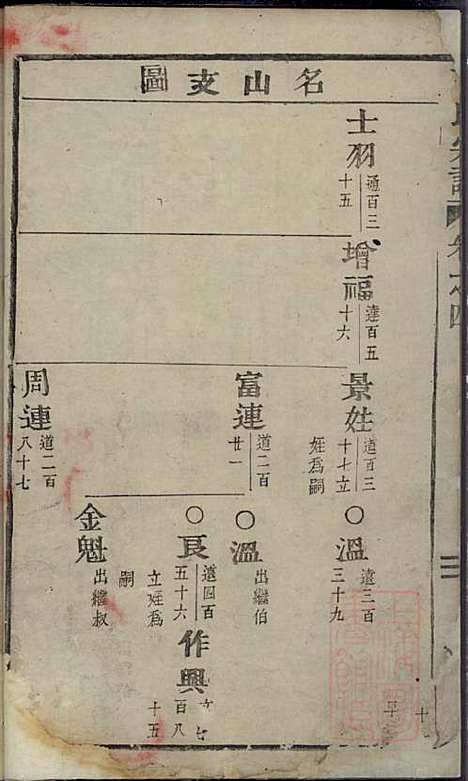 名山支圖
士羽
通百三
十五
增福
達百五
十六
景姓
道百三
十七立
姪爲嗣
富連
道二百
廿一
周連
道二百
八十七
○溫
遠三百
三十九
○溫
出繼伯
○良
遠四百
五十六
立姪爲
嗣
金魁
出繼叔
作興
百八
十五
宗譜
卷之四